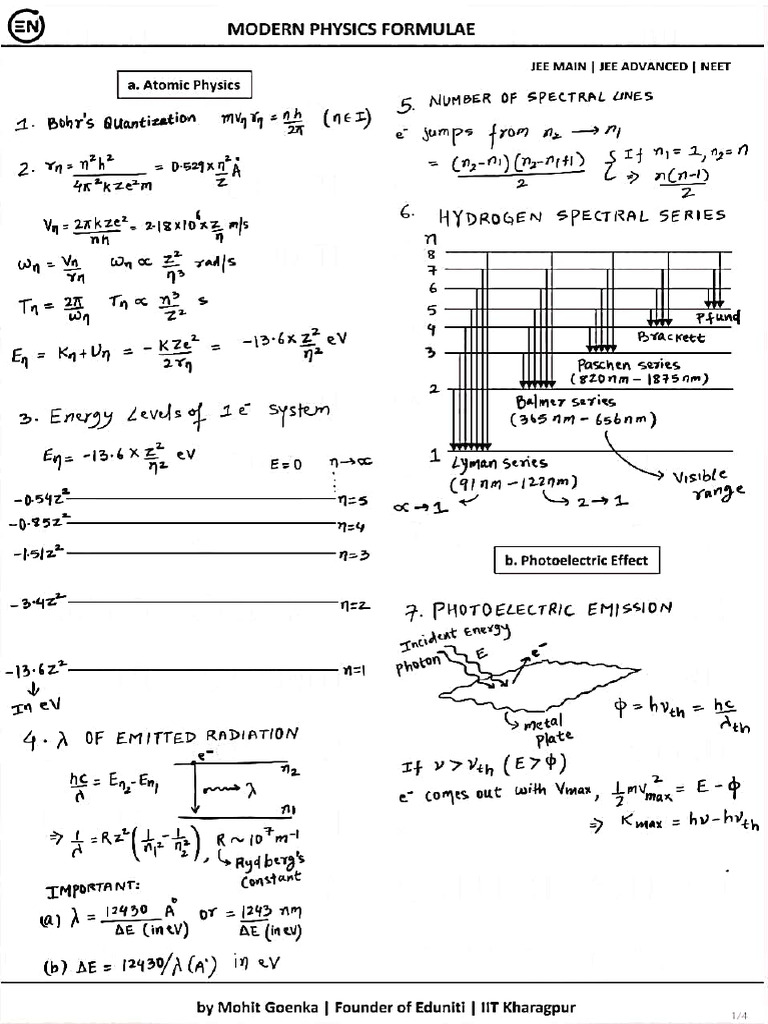 EN
MODERN PHYSICS FORMULAE
JEE MAIN | JEE ADVANCED | NEET
a. Atomic Physics
1. Bohr's Quantization mvₙrₙ = nh/2π (n∈I)
2. rₙ = n²h²/4π²kze²m = 0.529×n²/z A°
Vₙ = 2πkze²/nh = 2.18×10⁶×z/n m/s
ωₙ = Vₙ/rₙ ωₙ ∝ z²/n³ rad/s
Tₙ = 2π/ωₙ Tₙ ∝ n³/z² s
Eₙ = Kₙ+Uₙ = -kze²/2rₙ = -13.6×z²/n² eV
3. Energy Levels of 1e⁻ system
Eₙ = -13.6×z²/n² eV
E=0 n→∝
-0.54z² n=5
-0.85z² n=4
-1.51z² n=3
-3.4z² n=2
-13.6z² n=1
↓
In eV
4. λ OF EMITTED RADIATION
e⁻
hc/λ = Eₙ₂-Eₙ₁
n₂
λ
n₁
⇒ 1/λ = Rz²(1/n₁² - 1/n₂²), R ~ 10⁷m⁻¹
Rydberg's
Constant
IMPORTANT:
(a) λ = 12430/ΔE (in eV) A° or = 1243/ΔE (in eV) nm
(b) ΔE = 12430/λ(A°) in eV
5. NUMBER OF SPECTRAL LINES
e⁻ jumps from n₂ → n₁
= (n₂-n₁)(n₂-n₁+1)/2 { If n₁=1, n₂=n
⇒ n(n-1)/2
6. HYDROGEN SPECTRAL SERIES
n
8
7
6
5
Pfund
4
Brackett
3
Paschen series
(820nm - 1875nm)
2
Balmer series
(365nm - 656nm)
1
Lyman series
(91nm - 122nm)
Visible
range
∝→1
2→1
b. Photoelectric Effect
7. PHOTOELECTRIC EMISSION
Incident Energy
Photon
E
e⁻
metal
Plate
ϕ = hν_th = hc/λ_th
If ν > ν_th (E > ϕ)
e⁻ comes out with Vmax, ½mv²max = E - ϕ
⇒ Kmax = hν - hν_th
by Mohit Goenka | Founder of Eduniti | IIT Kharagpur
1/4